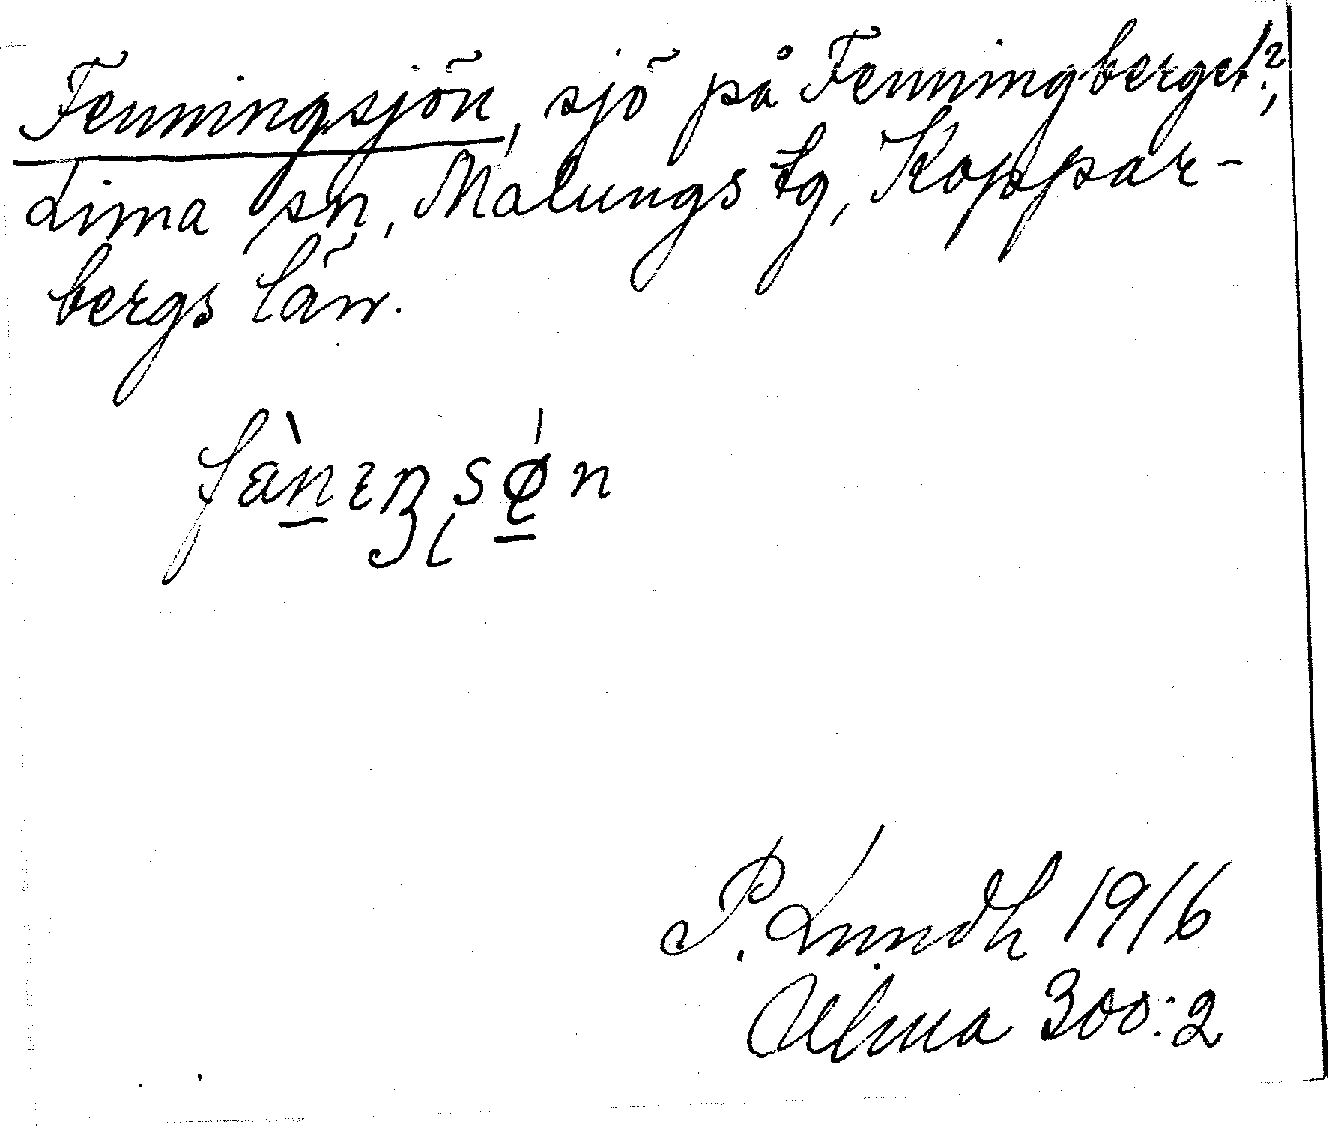 Fenningsjön, sjö på Fenningberget?,
Lima sn, Malungs tg, Koppar-
bergs län.
P. Lundh 1916
Ulma 300:2